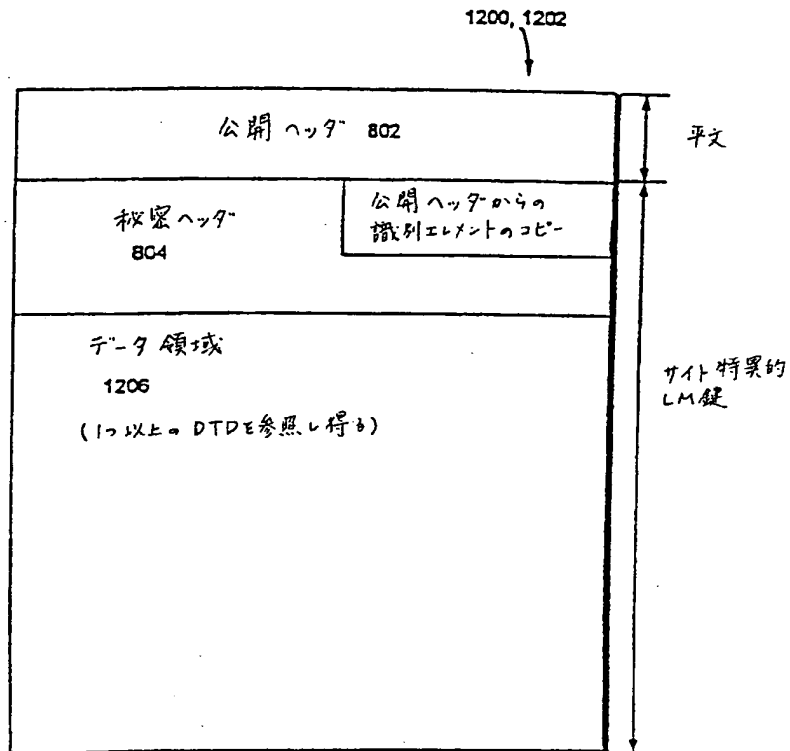 1200, 1202
公開ヘッダ 802
平文
秘密ヘッダ
804
公開ヘッダからの
識別エレメントのコピー
データ領域
1206
(1つ以上の DTDを参照し得る)
サイト特異的
LM鍵